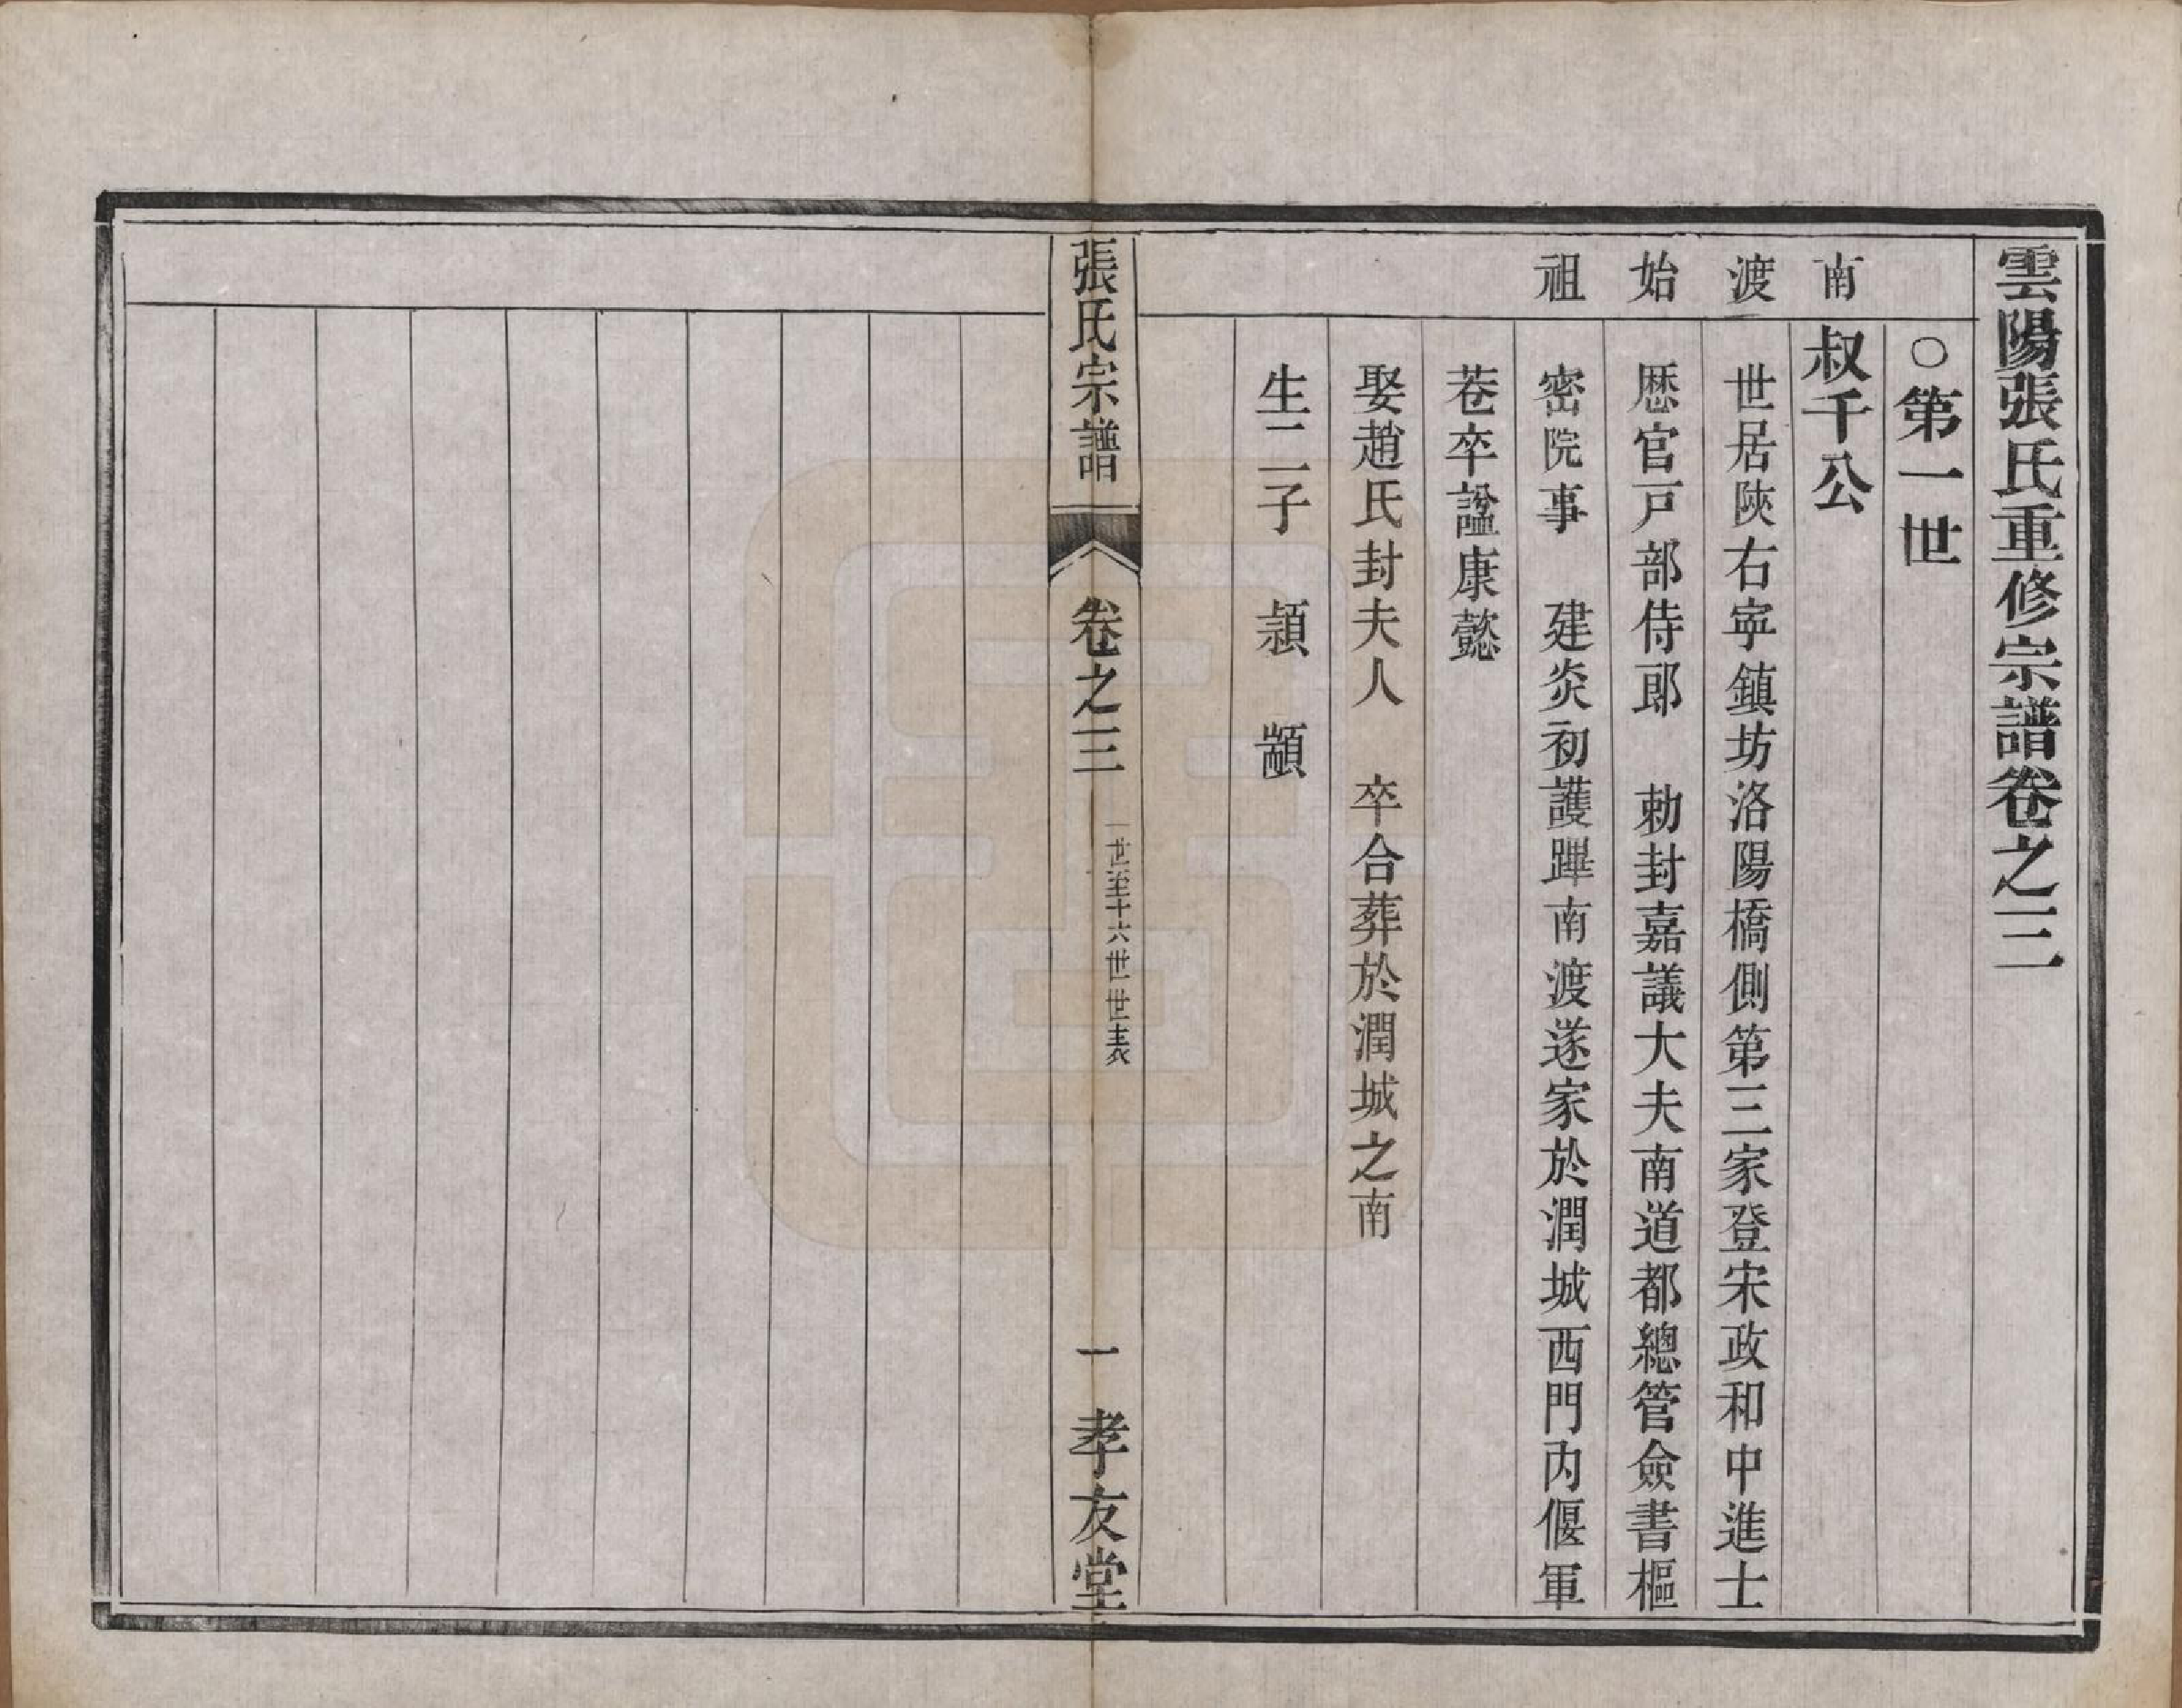 雲陽張氏重修宗譜卷之三
○第一世
南渡始祖
叔千公
世居陝右寕鎮坊洛陽橋側第三家登宋政和中進士
歷官戸部侍郎　勅封嘉議大夫南道都總管僉書樞
密院事　建炎初護蹕南渡遂家於潤城西門內偃軍
巷卒諡康懿
娶趙氏封夫人　卒合葬於潤城之南
生二子　頴　顓
張氏宗譜
卷之三
一世至十六世世表
一
孝友堂